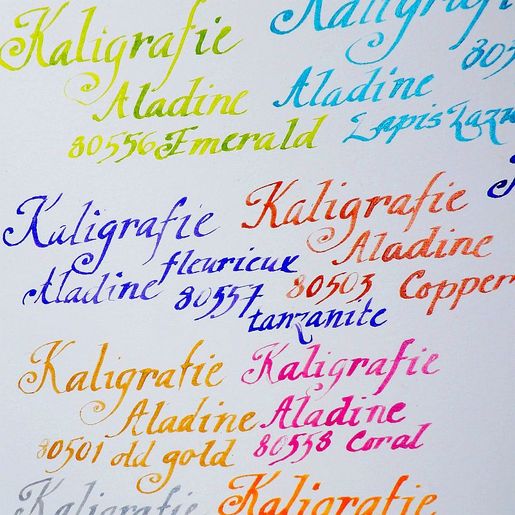 Kaligrafie
Aladine
80556 Emerald
Kaligrafi
Aladine
Lapis Lazu
Kaligrafie
fleurieux
Aladine 80557
tanzanite
Kaligrafie
Aladine
80503 Copper
Kaligrafie
Aladine
80501 old gold
Kaligrafie
Aladine
80558 Coral
Kaligrafie
Kaligrafie